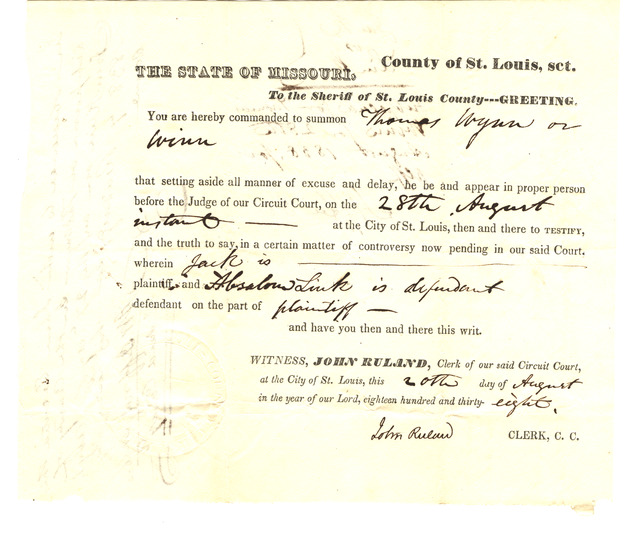 THE STATE OF MISSOURI, County of St. Louis, sct.
To the Sheriff of St. Louis County---GREETING.
You are hereby commanded to summon Thomas Wynn or
Winn
that setting aside all manner of excuse and delay, he be and appear in proper person
before the Judge of our Circuit Court, on the 28th August
instant — at the City of St. Louis, then and there to TESTIFY,
and the truth to say, in a certain matter of controversy now pending in our said Court.
wherein Jack is
plaintiff and Absalom Link is defendant
defendant on the part of plaintiff —
and have you then and there this writ.
WITNESS, JOHN RULAND, Clerk of our said Circuit Court,
at the City of St. Louis, this 20th day of August
in the year of our Lord, eighteen hundred and thirty-eight.
John Ruland CLERK, C. C.